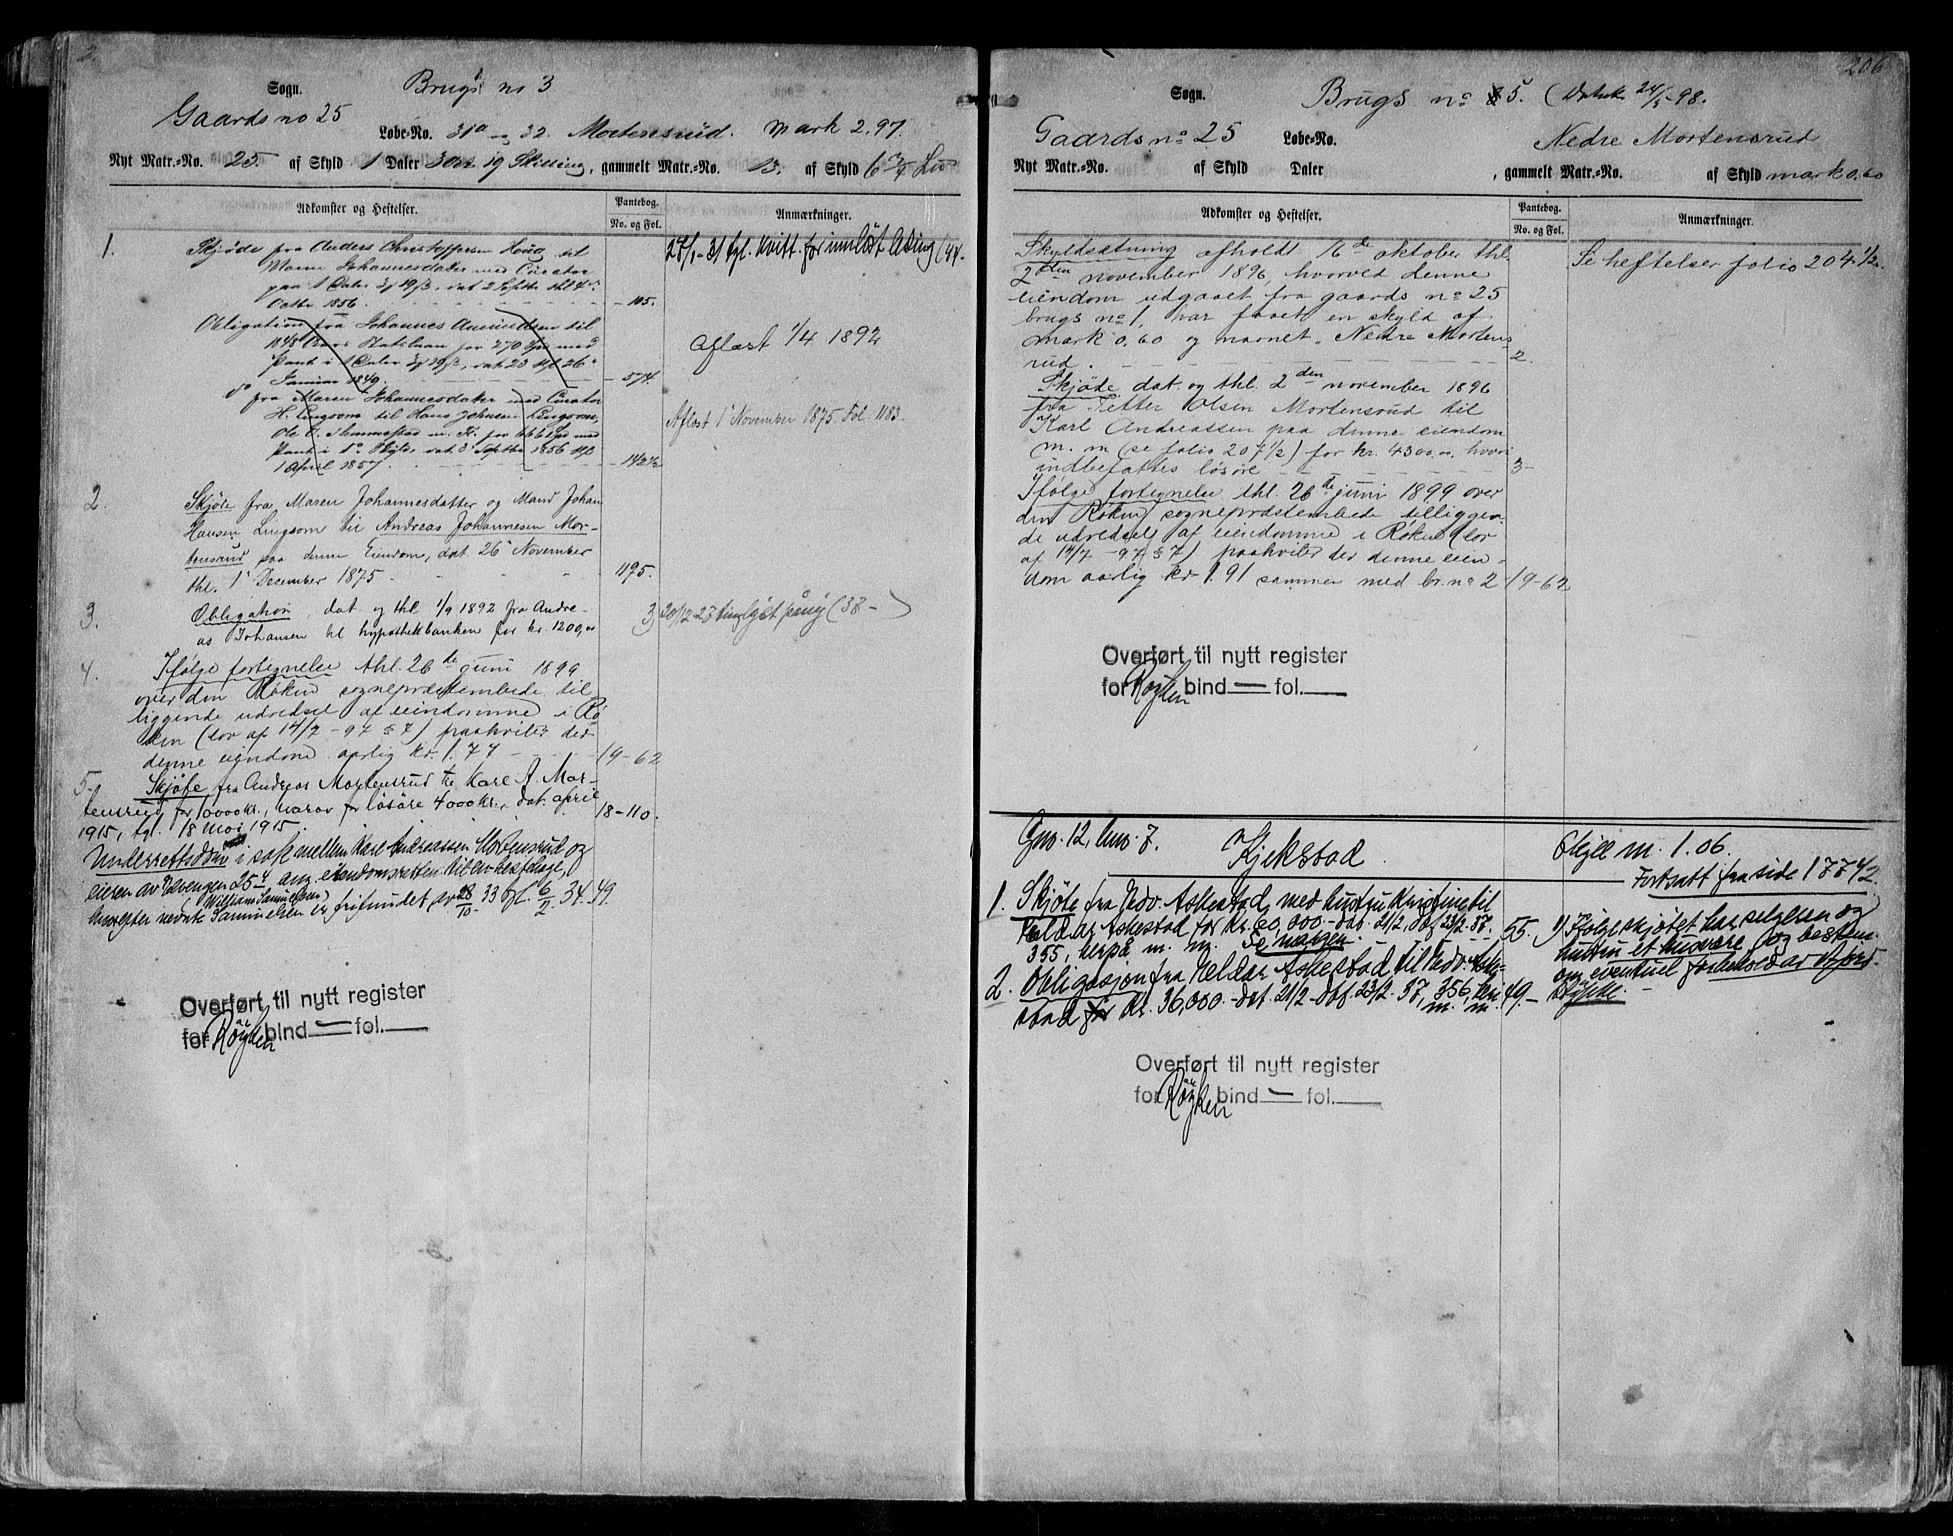 Sogn.
Brugs no 3
Gaards no 25
Løbe-No. 31a og 32. Mortensrud. Mark 2.97.
Nyt Matr.-No. 25. af Skyld 1 Daler 3 Ort 19 Skilling, gammelt Matr.-No. 13. af Skyld 6 3/4 Lis
Adkomster og Heftelser.
Pantebog.
No. og Fol.
Anmærkninger.
1.
Skjøde fra Anders Christoffersen Houg til
Maren Johannesdatter med Curator
paa 1 Daler 3 19 β, dat 2 Septbr thl 4de
Octbr 1856. - 105.
27/1-31 tgl. kvitt. for innløst
Obligation fra Johannes Amundsen til
for 270 Spd med
Pant i 1 Daler 3 19 β, dat 23 thl 26de
Januar 1849. - 574.
Aflæst 1/4 1892
do fra Maren Johannesdatter med Curator
H. Lingsom til Hans Johnsen Lingsom,
Ole O. for 666 Spd med
Pant i do Skyld, dat 3 Septbr 1856 thl
1 April 1857. - 142½
Aflæst 1 November 1875 Fol. 1183.
2.
Skjøde fra Maren Johannesdatter og Mand Johan
Hansen Lingsom til Andreas Johannesen Mor-
tensrud paa denne Eiendom, dat 26 November
thl. 1 December 1875 - 1195.
3.
Obligation, dat. og thl. 1/9 1892 fra Andre-
as Johansen til hypothekbanken for kr. 1200,00
3) 20/12-27 tinglyst påny (38-)
4.
Ifølge fortegnelse thl. 26de juni 1899
over den Røken sognepræstembede til-
liggende udredsel af eiendomme i Rø-
ken (lov af 14/7 - 97 § 7) paahviler der
denne eiendom aarlig kr. 1.77 - 19-62
5.
Skjøte fra Andreas Mortensrud til Karl A. Mor-
tensrud for 10000 kr., hvorav for løsøre 4000 kr., dat. april
1915, tgl. 18 mai 1915. 18-110.
Underrettsdom i sak mellem Karl Andreassen Mortensrud og
eieren av Elvengen 25-4 ang. eiendomsretten til en hestehage,
(William Samuelsen)
hvorefter nevnte Samuelsen er frifundet avs. 28/10. 33 tgl. 6/2. 34. 49.
Overført til nytt register
for Røyken bind — fol.
206
Sogn.
Brugs no 5. (
24/5-98.
Gaards no 25
Løbe-No.
Nedre Mortensrud
Nyt Matr.-No. af Skyld Daler , gammelt Matr.-No. af Skyld mark 0.60
Adkomster og Heftelser.
Pantebog.
No. og Fol.
Anmærkninger.
Skyldsætning afholdt 16de oktober thl.
2den november 1896, hvorved denne
eiendom udgaaet fra gaards no 25
brugs no 1, har faaet en skyld af
mark 0,60 og navnet „Nedre Mortens
rud. - 2.
Se heftelser folio 204 ½.
Skjøde dat. og thl. 2den november 1896
fra Petter Olsen Mortensrud til
Karl Andreassen paa denne eiendom
m. m (se folio 207½) for kr. 4300,00, hvori
indbefattes løsøre - 3-
Ifølge fortegnelse thl. 26de juni 1899 over
den Røken sognepræstembede tilliggen-
de udredsel af eiendomme i Røken (lov
af 14/7 -97 § 7) paahviler der denne eien-
dom aarlig kr 1.91 sammen med br. no 2 19-62
Overført til nytt register
for Røyken bind — fol.
Gno. 12, bno. 7. Kjekstad Skyld m. 1.06.
Fortsatt fra side 177½.
1. Skjøte fra Edv. Askestad med hustru Kristine til
Askestad for kr. 60,000.- dat. 21/2, dbf 23/2-37.
355, herpå m. m. Se margen. 55.
1) Ifølge skjøtet har selgeren og
hustru et husvære og bestem.
om eventuel forbehold av
stykke. -
2. Obligasjon fra Askestad til Edv. Aske-
stad for kr. 36,000 - dat. 21/2 - dbf 23/2- 37, 356, 49.-
m. m.
Overført til nytt register
for Røyken bind — fol.